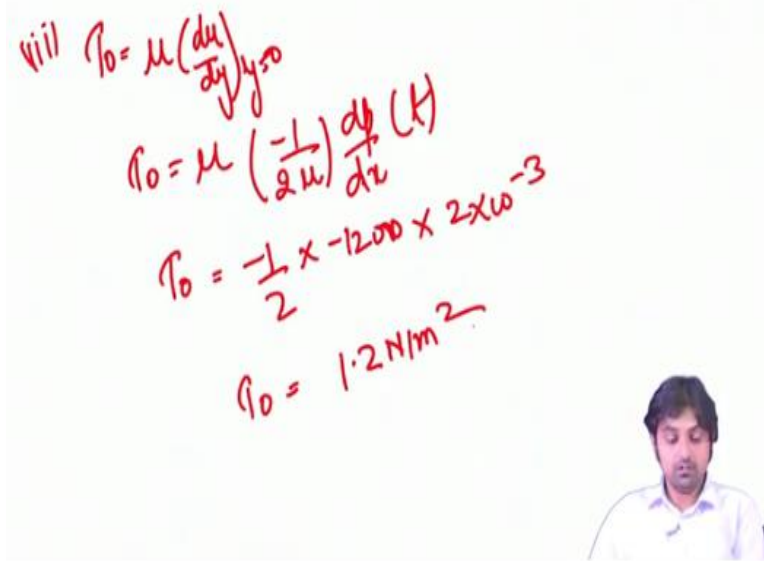 viii) τ₀ = μ (du/dy)y=0
τ₀ = μ (-1/2μ) dp/dx (t)
τ₀ = -1/2 × -1200 × 2×10⁻³
τ₀ = 1.2 N/m²